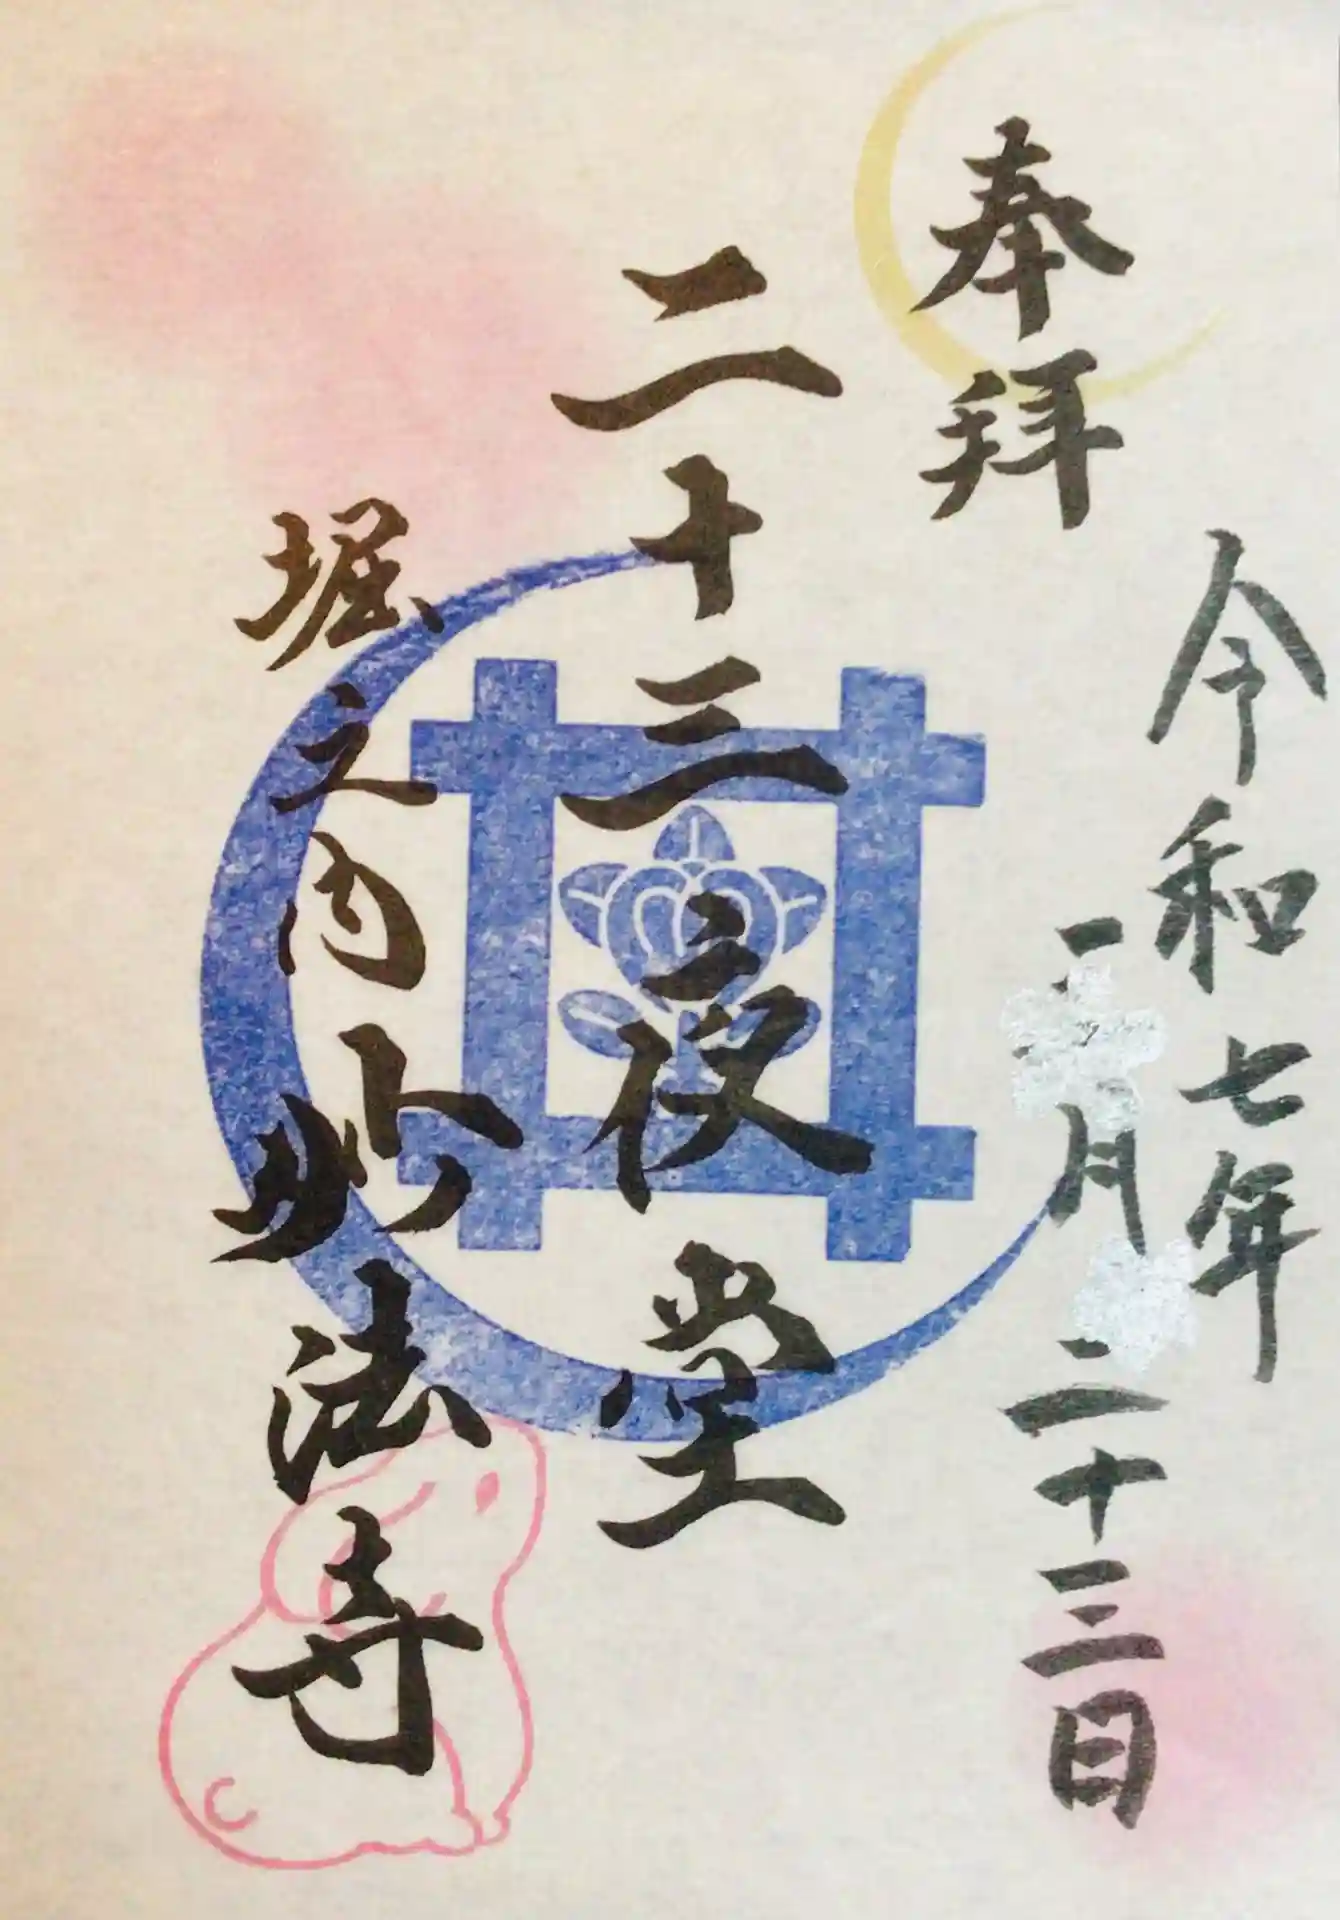 奉拝
令和七年
月二十三日
二十三夜堂
堀之内妙法寺